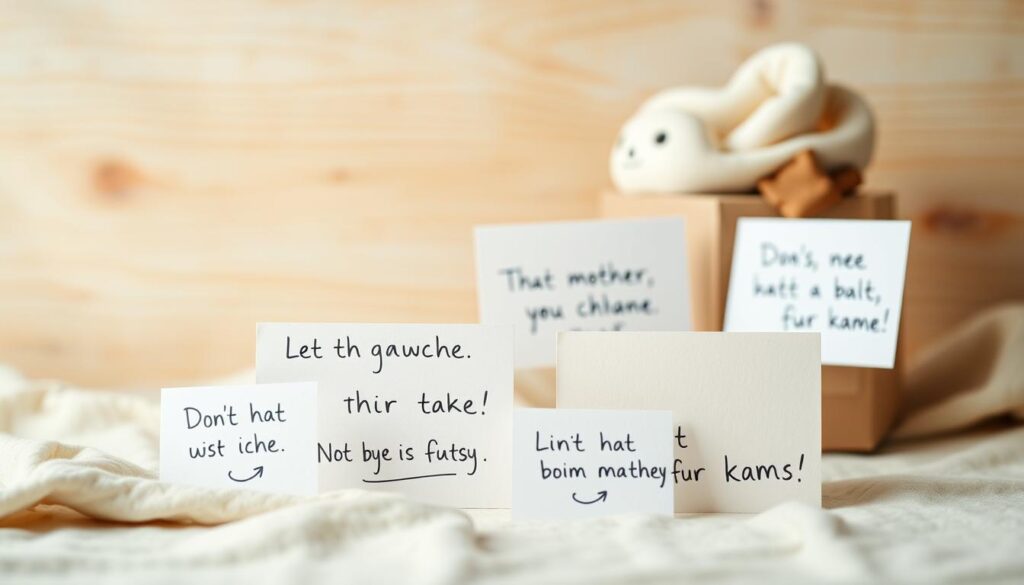 That mother,
you chlane.
Don's, nee
hatt a balt,
fur kame!
Let th gawche.
thir take!
Not bye is futsy.
Don't hat
wist iche.
Lin't hat
boim mathey
t
fur kams!